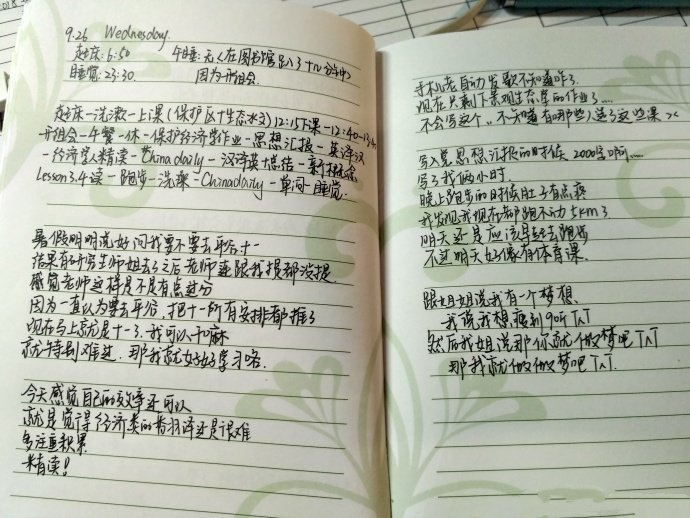 9.26 Wednesday.
起床:6:50 午睡:无(在图书馆趴了十几分钟)
睡觉:23:30 因为开组会.
起床-洗漱-上课(保护区+生态水文)12:15下课-12:40-13:40
开组会-午餐-休-保护经济学作业-思想汇报-英译汉
-经济学人精读-Chinadaily-汉译英+总结-新概念
Lesson3.4读-跑步-洗澡-Chinadaily-单词-睡觉.
暑假明明说好问我要不要去平谷十一
结果有研究生师姐去了之后老师连跟我提都没提.
感觉老师这样是不是有点过分
因为一直以为要去平谷,把十一所有安排都推了
现在马上就是十一了.我可以干嘛
就特别难过.那我就好好学习咯.
今天感觉自己的效率还可以
就是觉得经济类的翻译还是很难
多注重积累
精读!
手机老自动发歌不知道咋了.
现在只剩下景观生态学的作业了....
不会写这个..不知道有哪些人选了这些课 ><
写入党思想汇报的时候 2000字啊.....
写了我俩小时
晚上跑步的时候肚子有点疼
我发现我现在都跑不动5km了
明天还是应该早起去跑步
不过明天好像有体育课.
跟姐姐说我有一个梦想.
我说我想瘦到90斤TAT
然后我姐说那你就做梦吧TAT
那我就做做梦吧TAT.